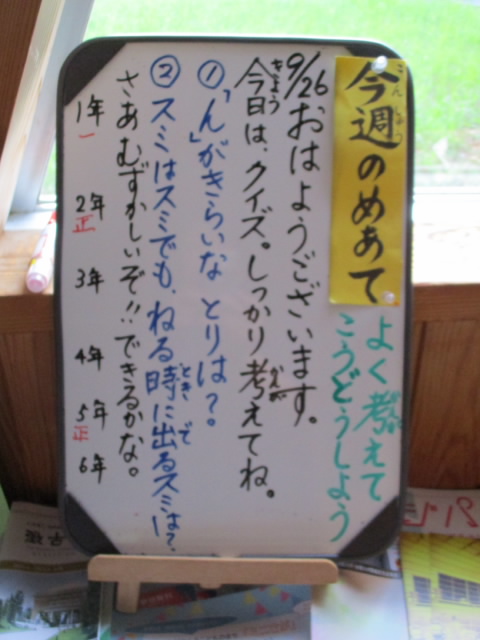 今週のめあて
よく考えて
こうどうしよう
9/26おはようございます。
今日は、クイズ。しっかり考えてね。
①「ん」がきらいな とりは?
②スミはスミでも、ねる時に出るスミは?
さあむずかしいぞ!!できるかな。
1年 一
2年 正
3年
4年
5年 正
6年